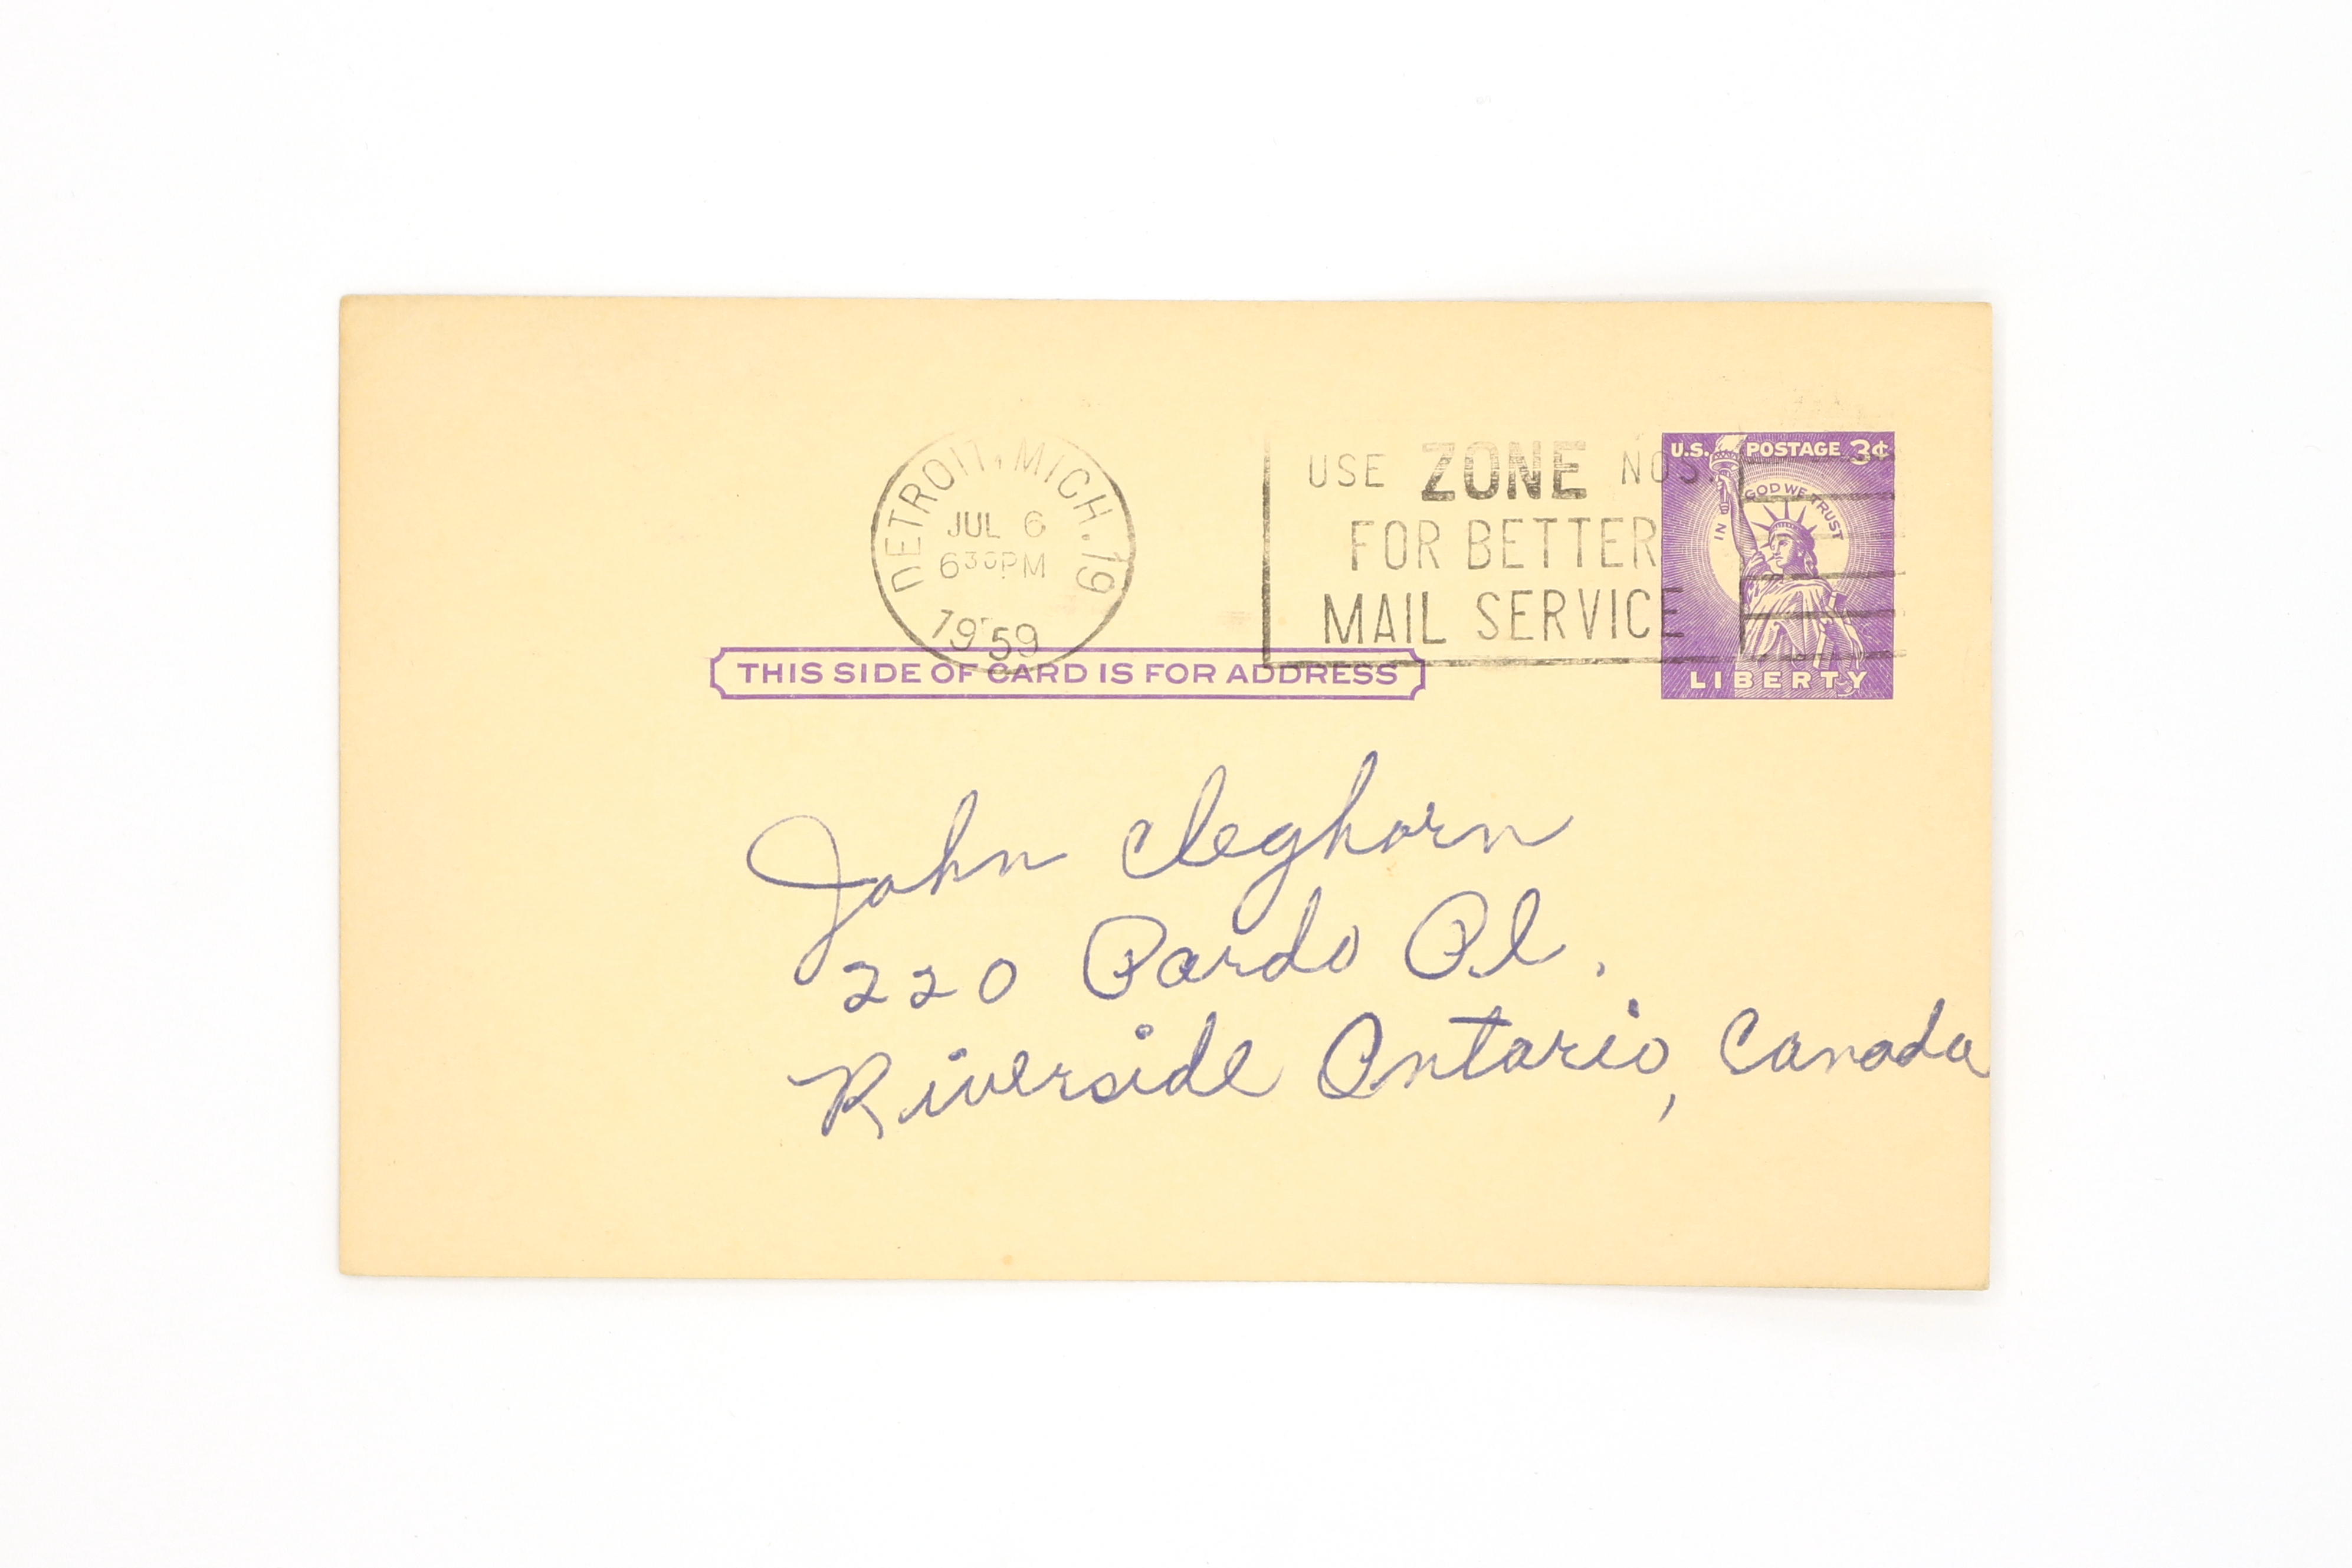 DETROIT, MICH. 19
JUL 6
6 30 PM
1959
USE ZONE NOS.
FOR BETTER
MAIL SERVICE
U.S. POSTAGE 3¢
IN GOD WE TRUST
LIBERTY
THIS SIDE OF CARD IS FOR ADDRESS
John Cleghorn
220 Pardo Pl.
Riverside Ontario, Canada